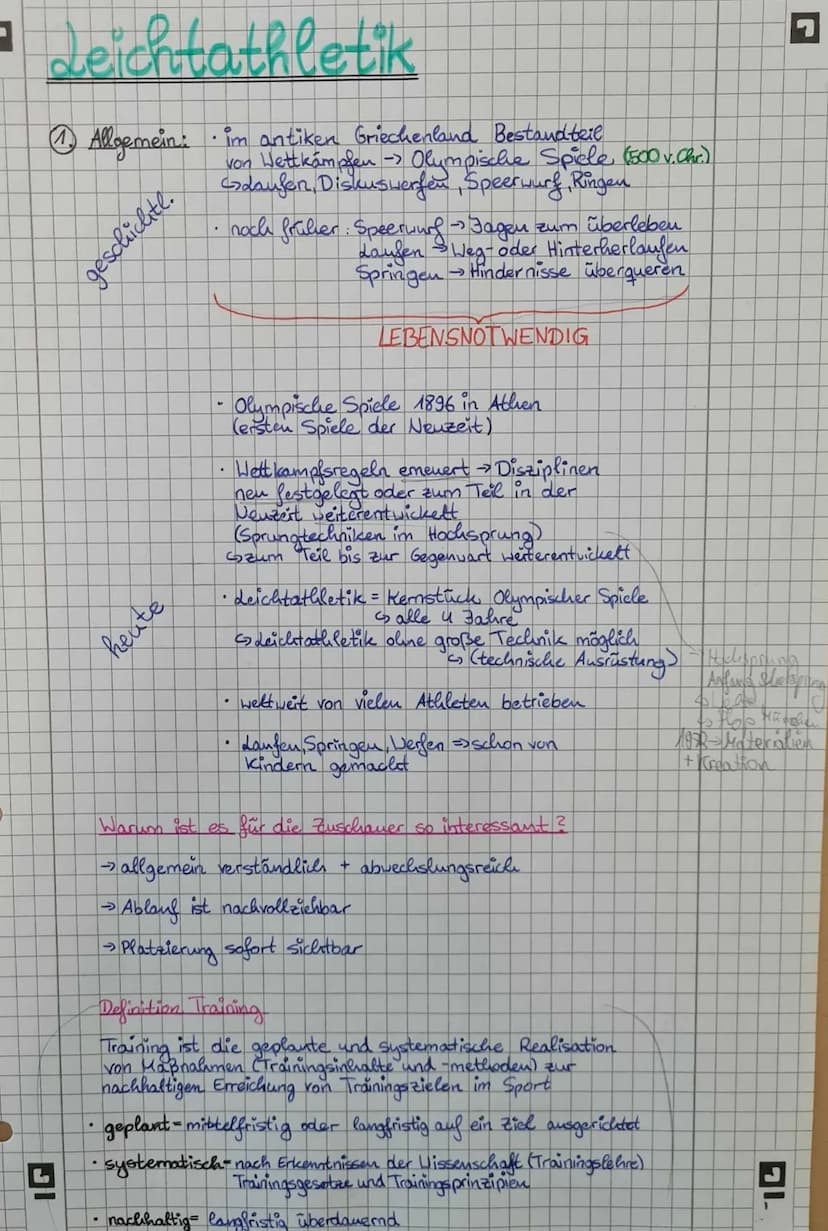 Leichtathletik
① Allgemein: · im antiken Griechenland Bestandteil
von Wettkämpfen → Olympische Spiele (500 v. Chr.)
↳ Laufen, Diskuswerfen, Speerwurf, Ringen
geschichtl.
· noch früher: Speerwurf → Jagen zum überleben
Laufen → Weg- oder Hinterherlaufen
Springen → Hindernisse überqueren
LEBENSNOTWENDIG
· Olympische Spiele 1896 in Athen
(ersten Spiele der Neuzeit)
· Wettkampfsregeln erneuert → Disziplinen
neu festgelegt oder zum Teil in der
Neuzeit weiterentwickelt
(Sprungtechniken im Hochsprung)
↳ zum Teil bis zur Gegenwart weiterentwickelt
heute
· Leichtathletik = Kernstück Olympischer Spiele
↳ alle 4 Jahre
↳ Leichtathletik ohne große Technik möglich
↳ (technische Ausrüstung)
→ Hochsprung
Anfang
↳ Flop München
1972 → Materialien
+ Kreation
· weltweit von vielen Athleten betrieben
· Laufen, Springen, Werfen ⇒ schon von
Kindern gemacht
Warum ist es für die Zuschauer so interessant?
→ allgemein verständlich + abwechslungsreich
→ Ablauf ist nachvollziehbar
→ Platzierung sofort sichtbar
Definition Training
Training ist die geplante und systematische Realisation
von Maßnahmen (Trainingsinhalte und -methoden) zur
nachhaltigen Erreichung von Trainingszielen im Sport
· geplant = mittelfristig oder langfristig auf ein Ziel ausgerichtet
· systematisch = nach Erkenntnissen der Wissenschaft (Trainingslehre)
Trainingsgesetze und Trainingsprinzipien
· nachhaltig = langfristig überdauernd